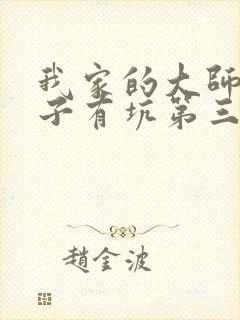 我家的大師
子有坑第三
趙金波